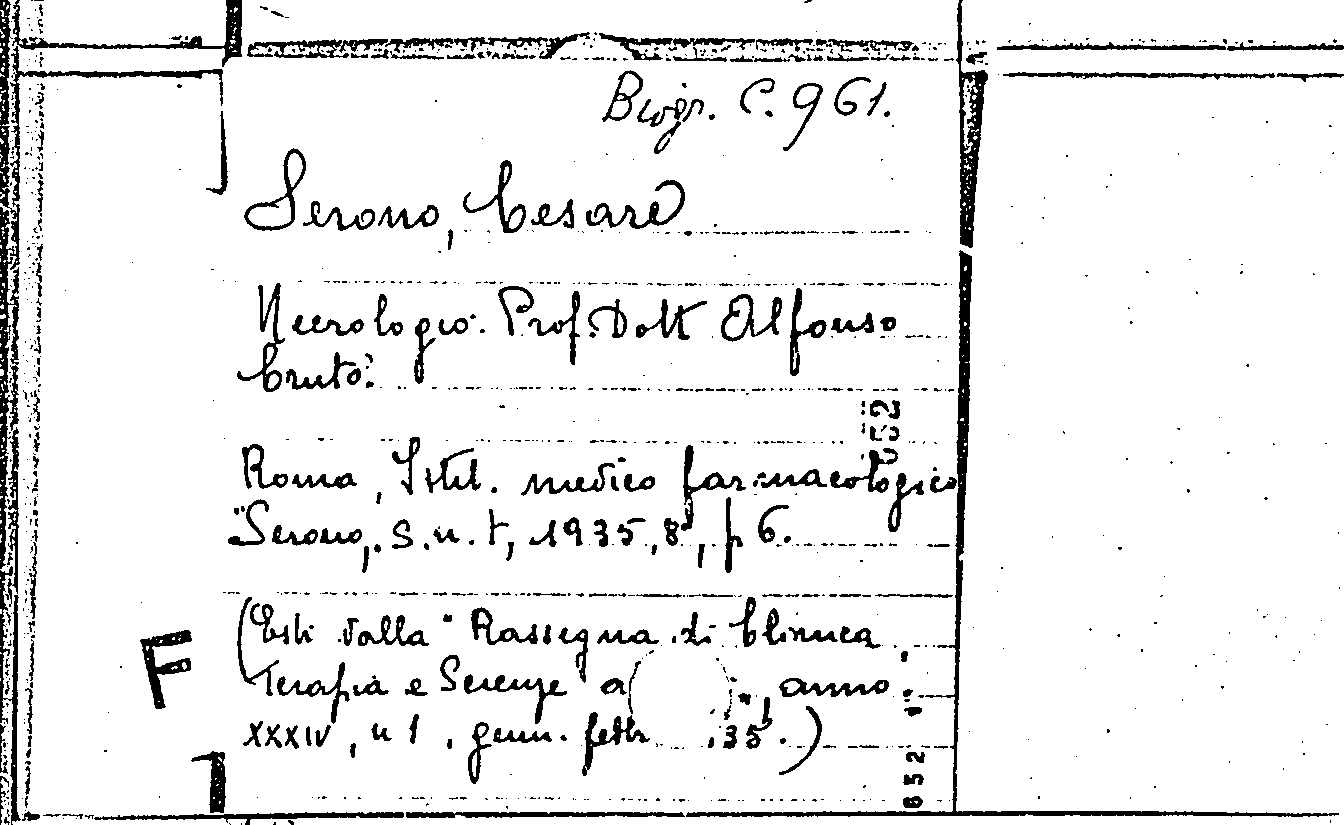 Biogr. C. 961.
Serono, Cesare
Necrologio. Prof. Dott Alfonso
Cruto.
Roma, Istit. medico farmacologico
"Serono, s.n.t, 1935, 8°, p 6.
(Estr. dalla "Rassegna di Clinica,
Terapia e Scienze a , anno
XXXIV, n 1, genn. febbr .35.)
F